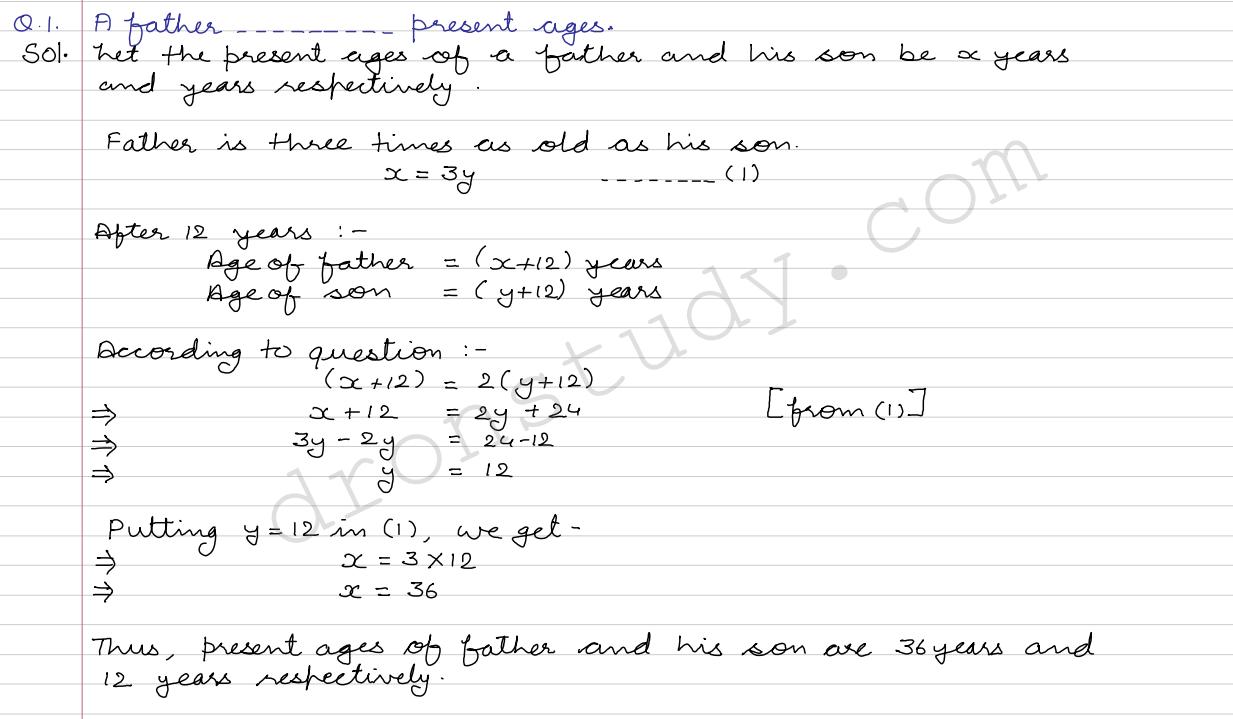 Q.1. A father --------- present ages.
Sol. Let the present ages of a father and his son be x years
and years respectively.
Father is three times as old as his son.
x = 3y -------- (1)
After 12 years :-
Age of father = (x+12) years
Age of son = (y+12) years
According to question :-
(x+12) = 2(y+12)
⇒ x+12 = 2y + 24 [from (1)]
⇒ 3y - 2y = 24-12
⇒ y = 12
Putting y=12 in (1), we get-
⇒ x = 3×12
⇒ x = 36
Thus, present ages of father and his son are 36 years and
12 years respectively.
dronstudy.com